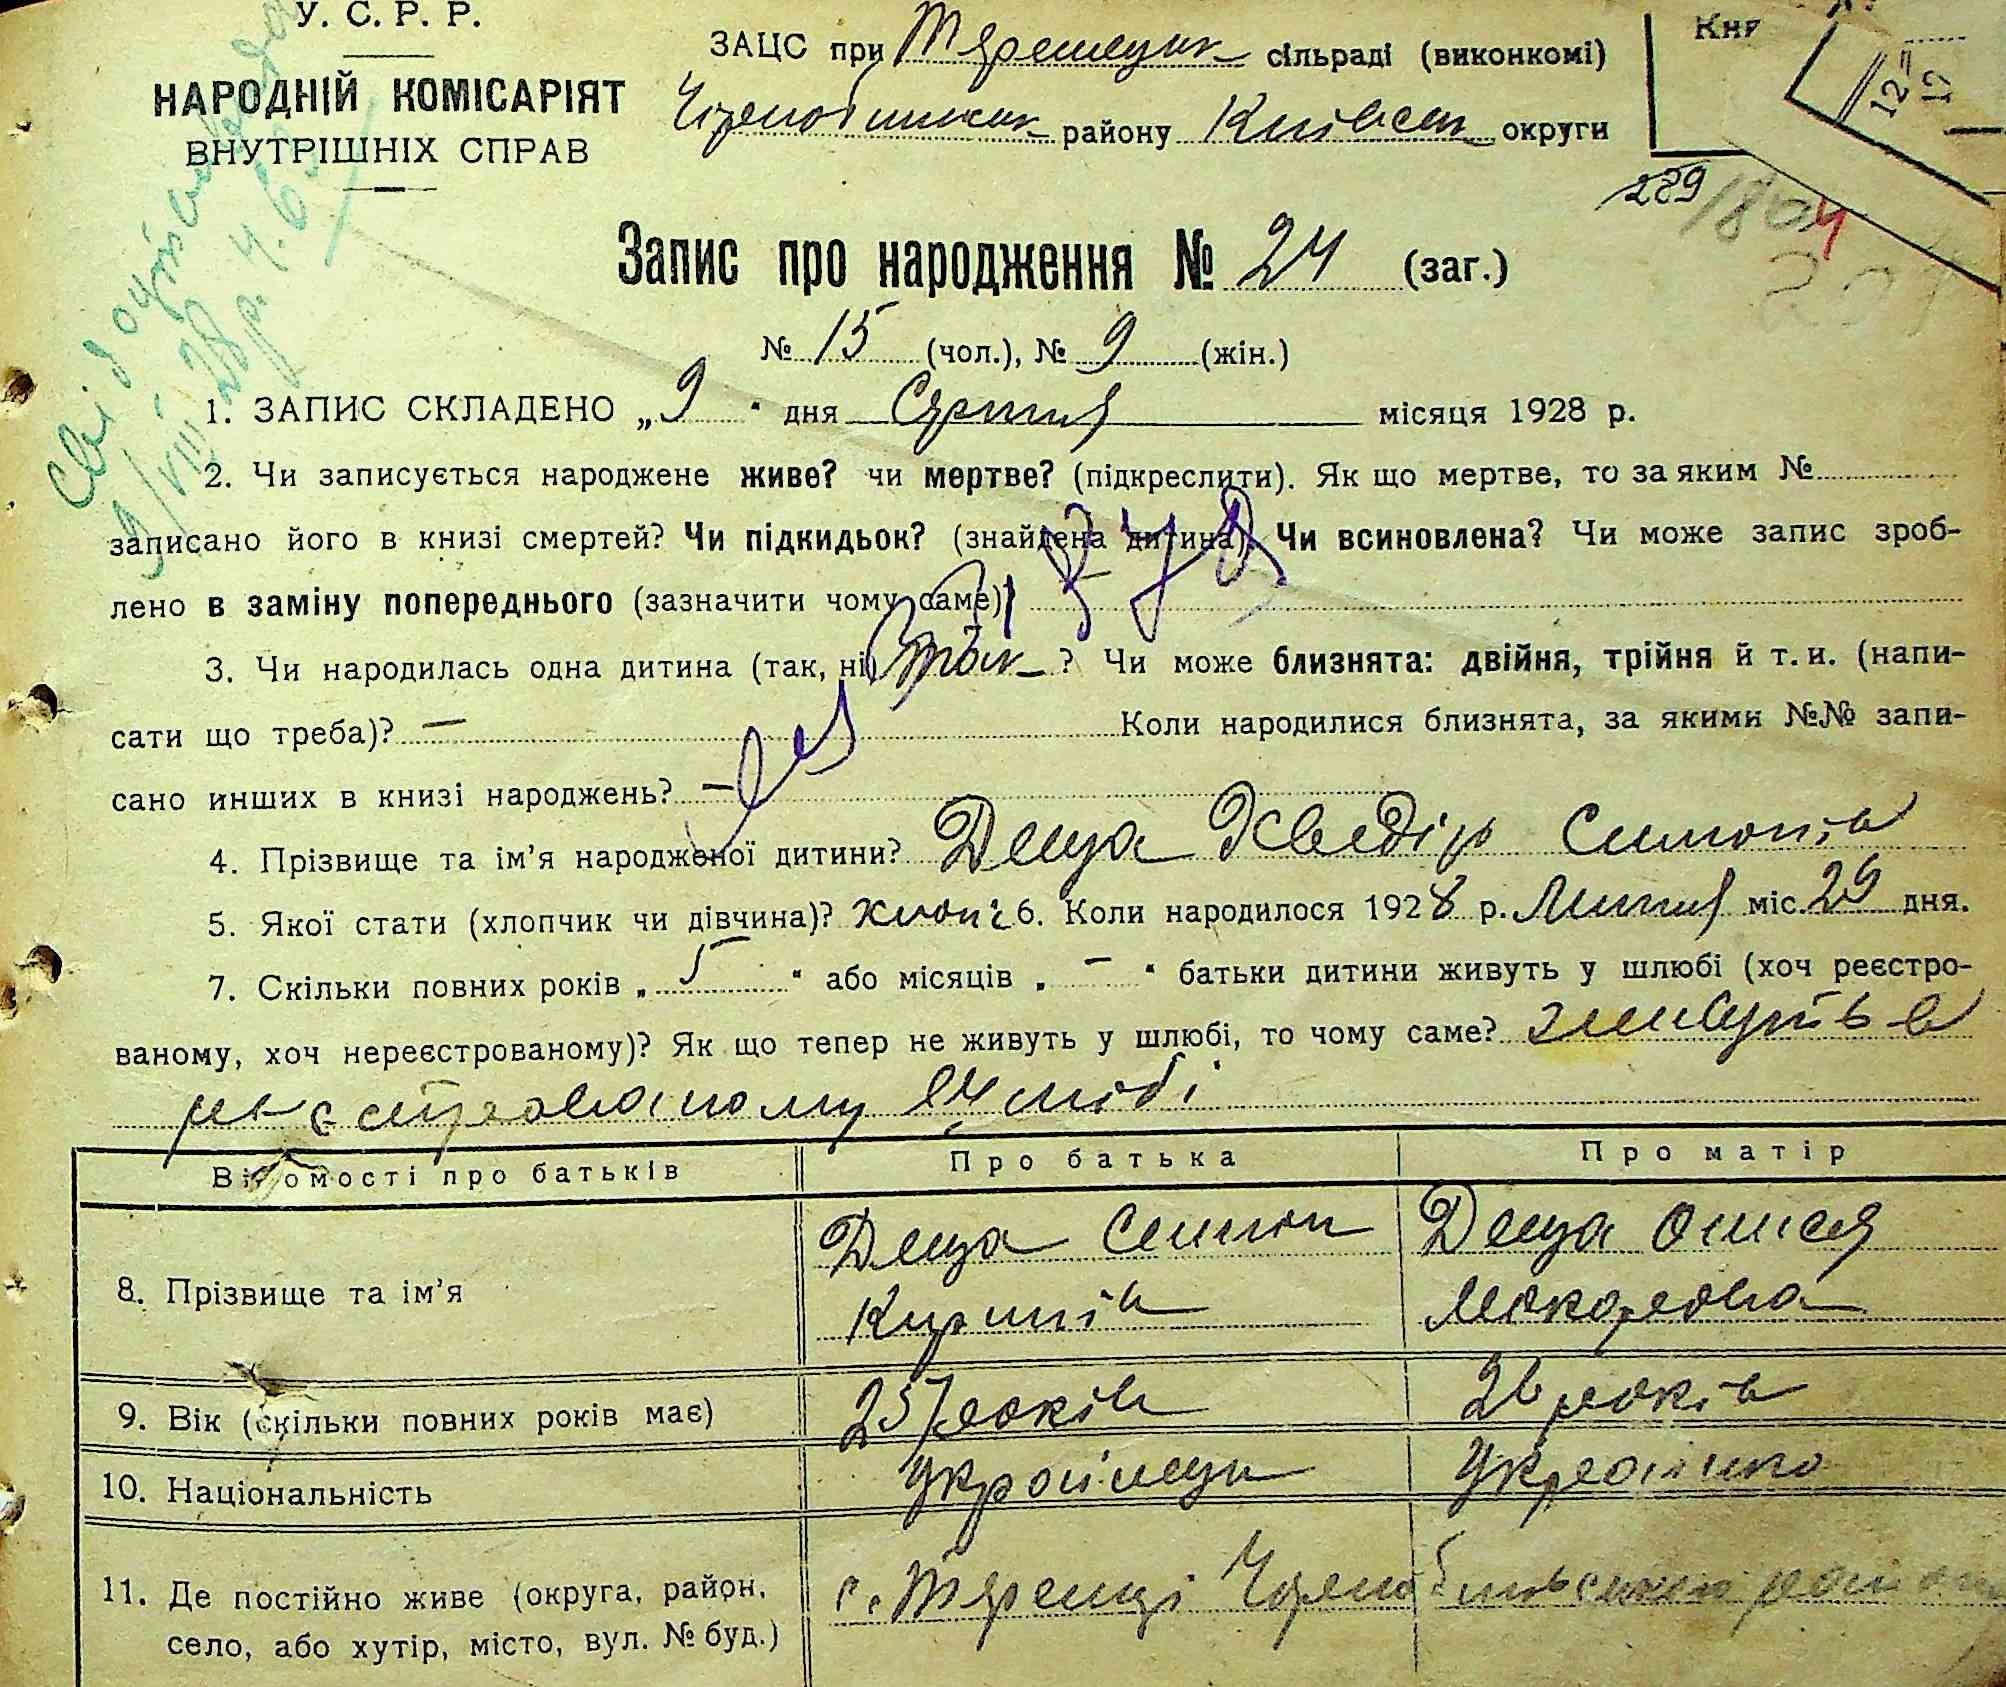 У. С. Р. Р.
НАРОДНІЙ КОМІСАРІЯТ
ВНУТРІШНІХ СПРАВ
ЗАЦС при сільраді (виконкомі)
району Київськ округи
Кни
12=
289
Запис про народження № 24 (заг.)
№ 15 (чол.), № 9 (жін.)
1. ЗАПИС СКЛАДЕНО „9“ дня Серпня місяця 1928 р.
2. Чи записується народжене живе? чи мертве? (підкреслити). Як що мертве, то за яким №
записано його в книзі смертей? Чи підкидьок? (знайдена дитина). Чи всиновлена? Чи може запис зроб-
лено в заміну попереднього (зазначити чому саме)
3. Чи народилась одна дитина (так, ні) так ? Чи може близнята: двійня, трійня й т. и. (напи-
сати що треба)? — Коли народилися близнята, за якими №№ запи-
сано инших в книзі народжень? —
4. Прізвище та ім'я народженої дитини? Деща Хведір Симонів
5. Якої стати (хлопчик чи дівчина)? хлопч 6. Коли народилося 1928 р. Липня міс. 29 дня.
7. Скільки повних років „ 5 “ або місяців „ — “ батьки дитини живуть у шлюбі (хоч реєстро-
ваному, хоч нереєстрованому)? Як що тепер не живуть у шлюбі, то чому саме? живуть в
реєстрованому шлюбі
Відомості про батьків Про батька Про матір
8. Прізвище та ім'я Деща Симон Деща Олися
Макаровна
9. Вік (скільки повних років має) 25 років 26 років
10. Національність українець українка
11. Де постійно живе (округа, район, с. Теремці Чорнобильського району
село, або хутір, місто, вул. № буд.)